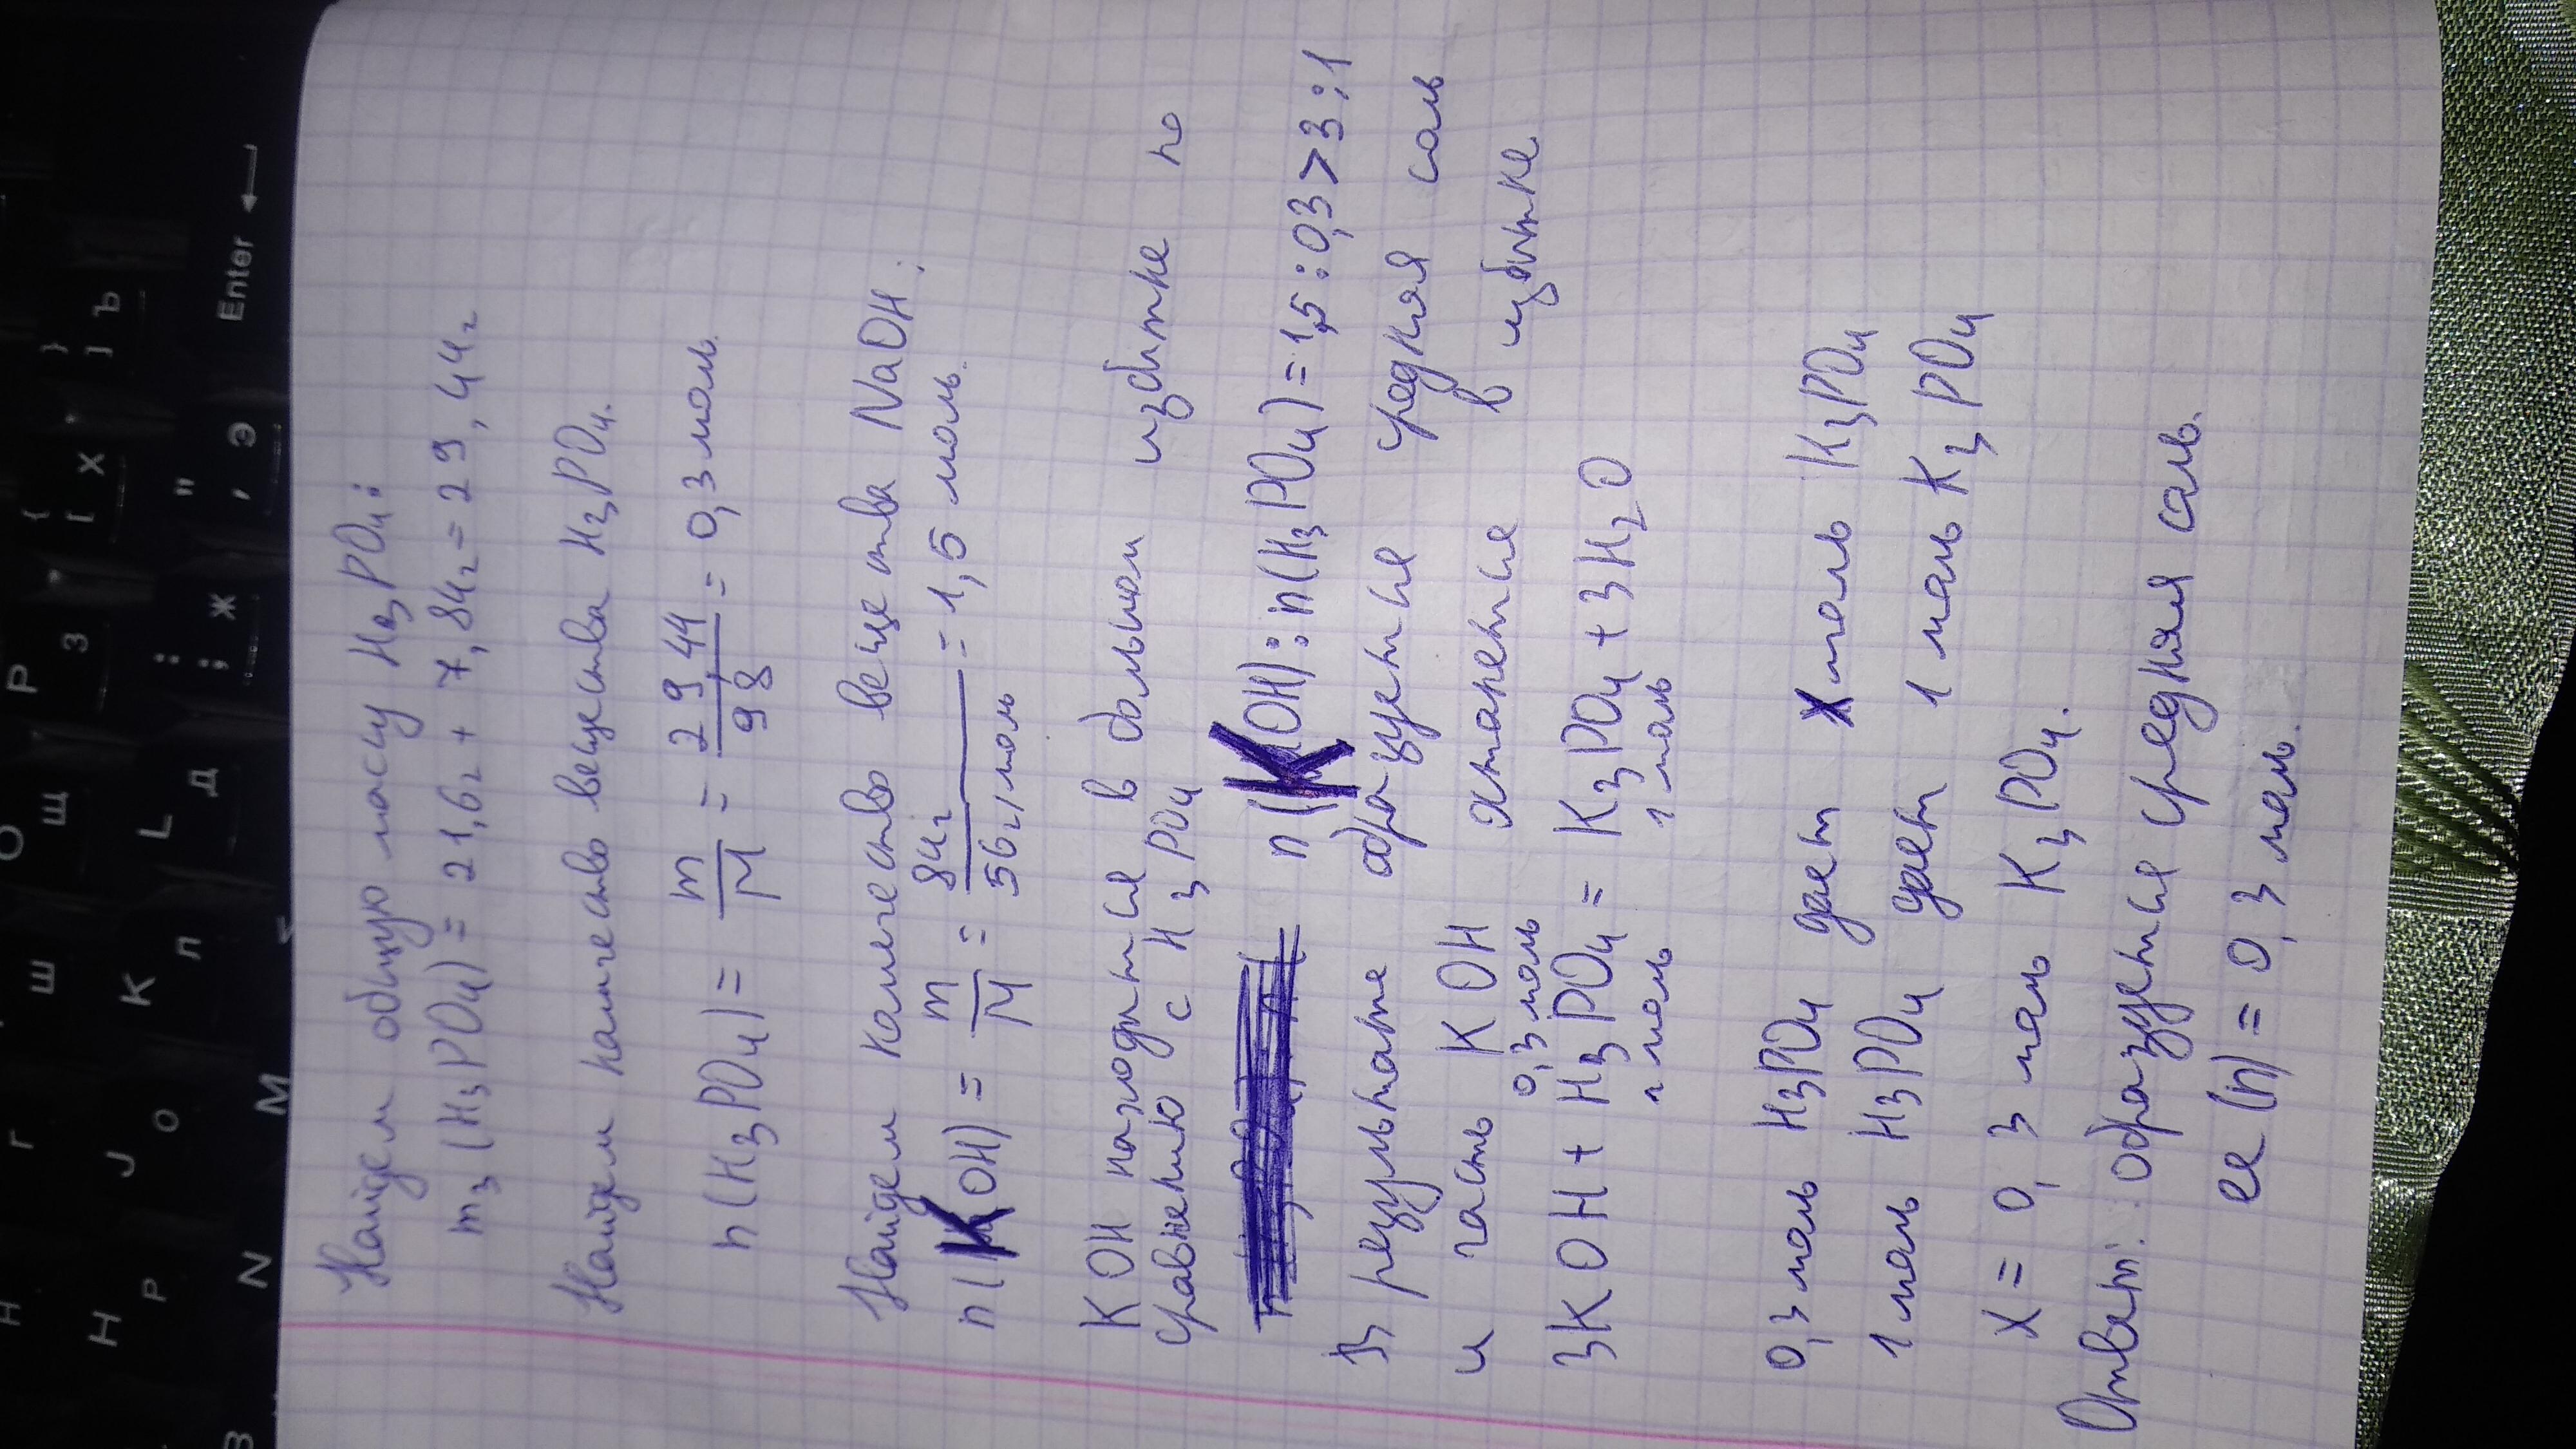 Найдем общую массу H3PO4:
m3 (H3PO4) = 21,6г + 7,84г = 29,44г
Найдем количество вещества H3PO4.
n (H3PO4) = m/M = 29,44/98 = 0,3 моль.
Найдем количество вещества NaOH:
n (KOH) = m/M = 84г/56г/моль = 1,5 моль.
KOH находится в большом избытке по
уравнению с H3PO4
n (KOH) : n (H3PO4) = 1,5 : 0,3 > 3 : 1
В результате образуется средняя соль
и часть KOH останется в избытке
0,3 моль
3KOH + H3PO4 = K3PO4 + 3H2O
1 моль 1 моль
0,3 моль H3PO4 дает X моль K3PO4
1 моль H3PO4 дает 1 моль K3PO4
X = 0,3 моль K3PO4.
Ответ: образуется средняя соль.
ее (n) = 0,3 моль.
Enter
Р
О
Щ
З
{ [ Х
} ] Ъ
Г
Ш
L Д
: ; Ж
" ' Э
Н
J О
K Л
Н Р
N
M
В